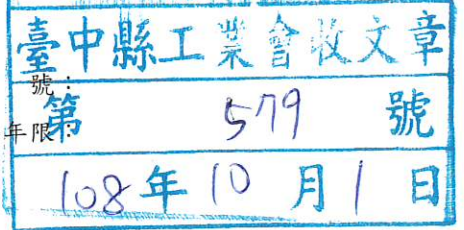 臺中縣工業會收文章
號：
第 579 號
年限：
108年10月1日